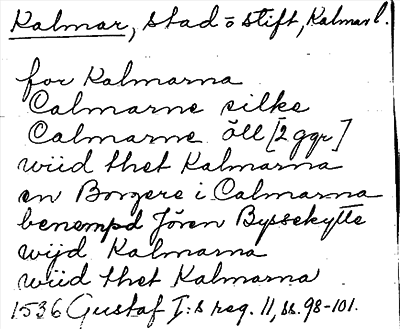 Kalmar, stad o stift, Kalmar l.
for Kalmarna
Calmarne silke
Calmarne öll [2 ggr]
wiid thet Kalmarna
en Borgere i Calmarna
benempd Jören Byssekytte
wijd Kalmarna
wiid thet Kalmarna
1536 Gustaf I:s reg. 11, ss. 98-101.